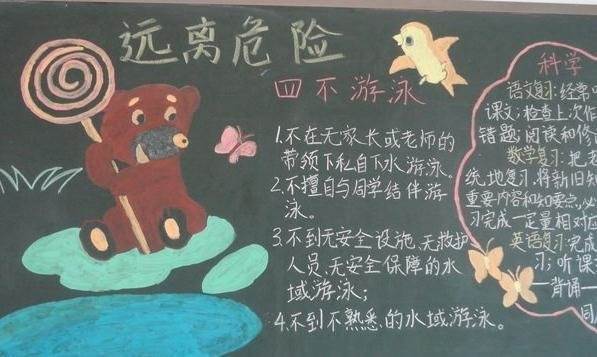 远离危险
四不游泳
1.不在无家长或老师的
带领下私自下水游泳。
2.不擅自与同学结伴游
泳。
3.不到无安全设施、无救护
人员、无安全保障的水
域游泳;
4.不到不熟悉的水域游泳。
科学
语文复习:经常
课文;检查上次作
错题;阅读和修
数学复习:把老
统地复习,将新旧知
重要内容和知要点,必
习完成一定量相对应
英语复习:完成
习;听课
背诵